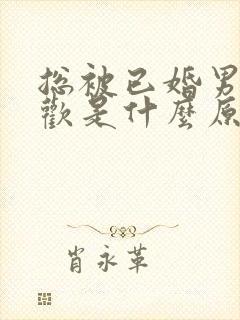 总被已婚男
歡是什麼原
肖永革